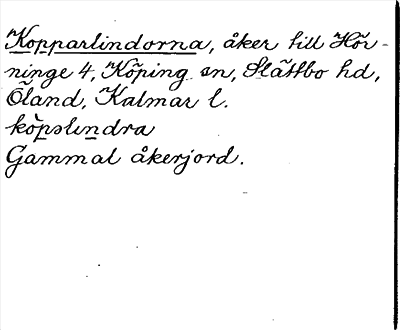 Kopparlindorna, åker till Hör-
ninge 4, Köping sn, Slättbo hd,
Öland, Kalmar l.
kòpslindra
Gammal åkerjord.